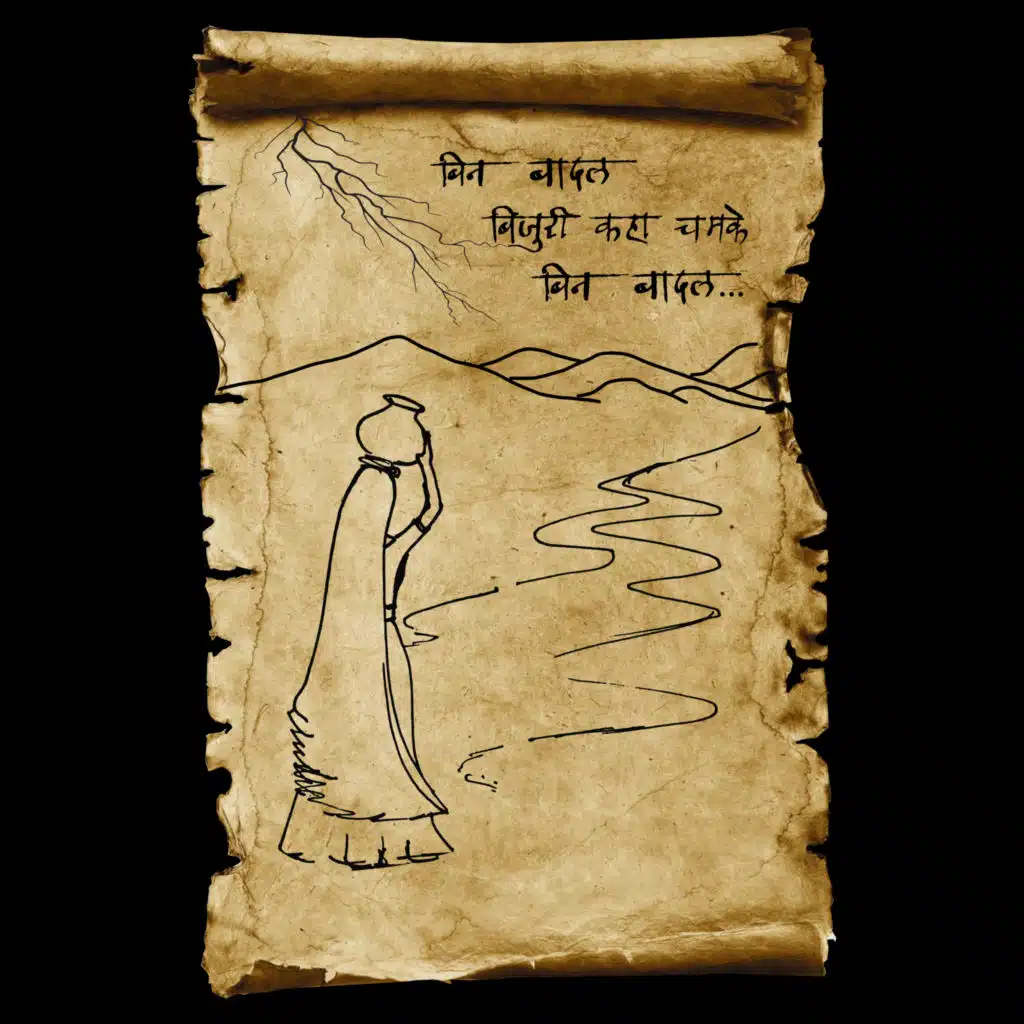 बिन बादल
बिजुरी कहा चमके
बिन बादल...